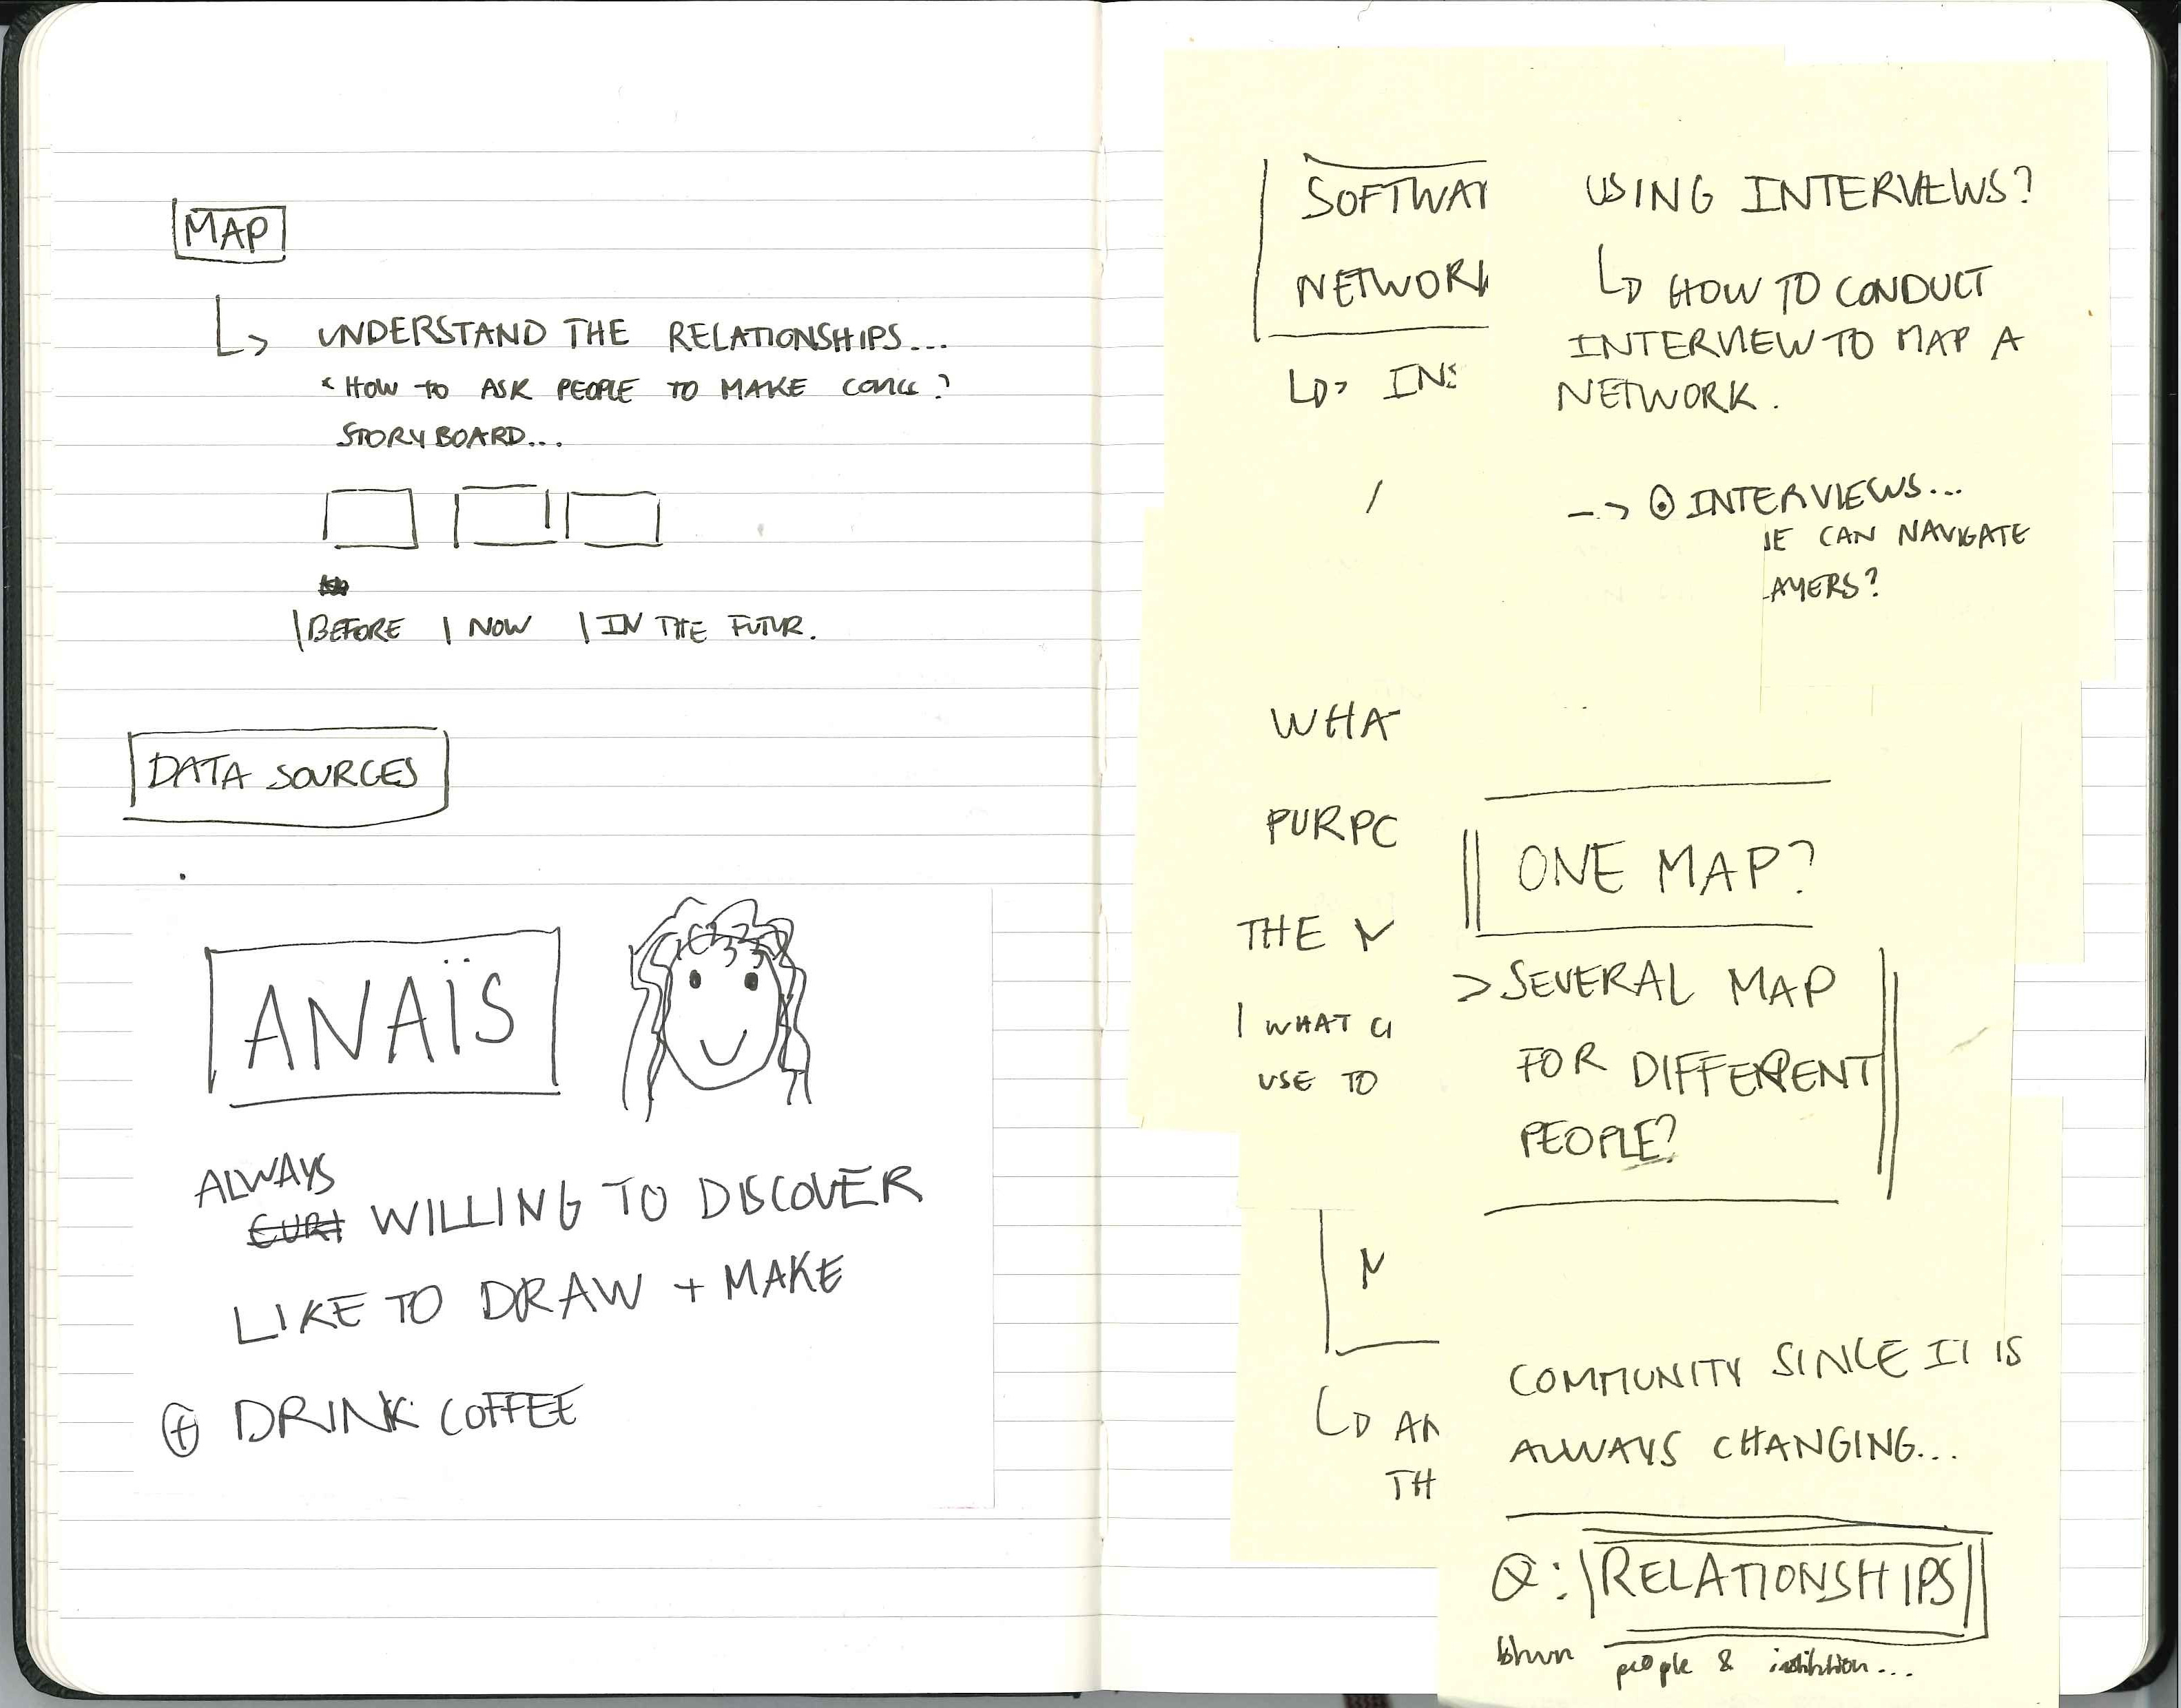 MAP
UNDERSTAND THE RELATIONSHIPS...
HOW TO ASK PEOPLE TO MAKE ?
STORYBOARD...
BEFORE | NOW | IN THE FUTUR.
DATA SOURCES
ANAÏS
ALWAYS
WILLING TO DISCOVER
LIKE TO DRAW + MAKE
+ DRINK COFFEE
SOFTWA
NETWOR
USING INTERVIEWS?
HOW TO CONDUCT
INTERVIEW TO MAP A
NETWORK.
INTERVIEWS...
CAN NAVIGATE
AYERS?
WHA
PURPO
THE
WHAT
USE TO
ONE MAP?
> SEVERAL MAP
FOR DIFFERENT
PEOPLE?
TH
COMMUNITY SINCE IT IS
ALWAYS CHANGING...
Q: RELATIONSHIPS
people & institution...